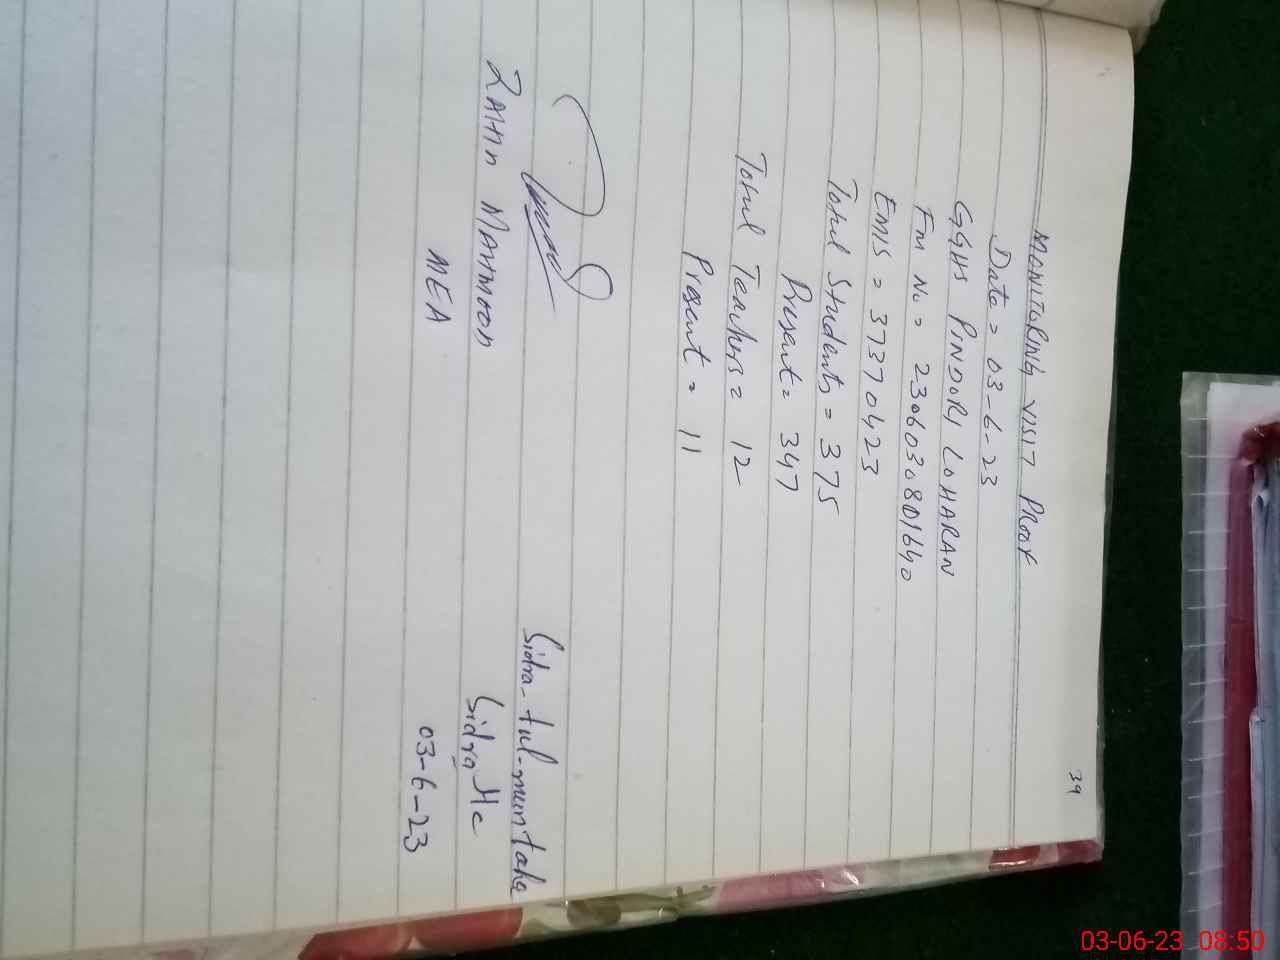 39
MONITORING VISIT PROOF
Date = 03-6-23
GGHS PINDORI LOHARAN
Fm No = 2306030801640
EMIS = 37370423
Total Students = 375
Present = 347
Total Teachers = 12
Present = 11
Sidra-tul-muntaha
ZAHIR MAYMOON
Sidra He
MEA
03-6-23
03-06-23 08:50